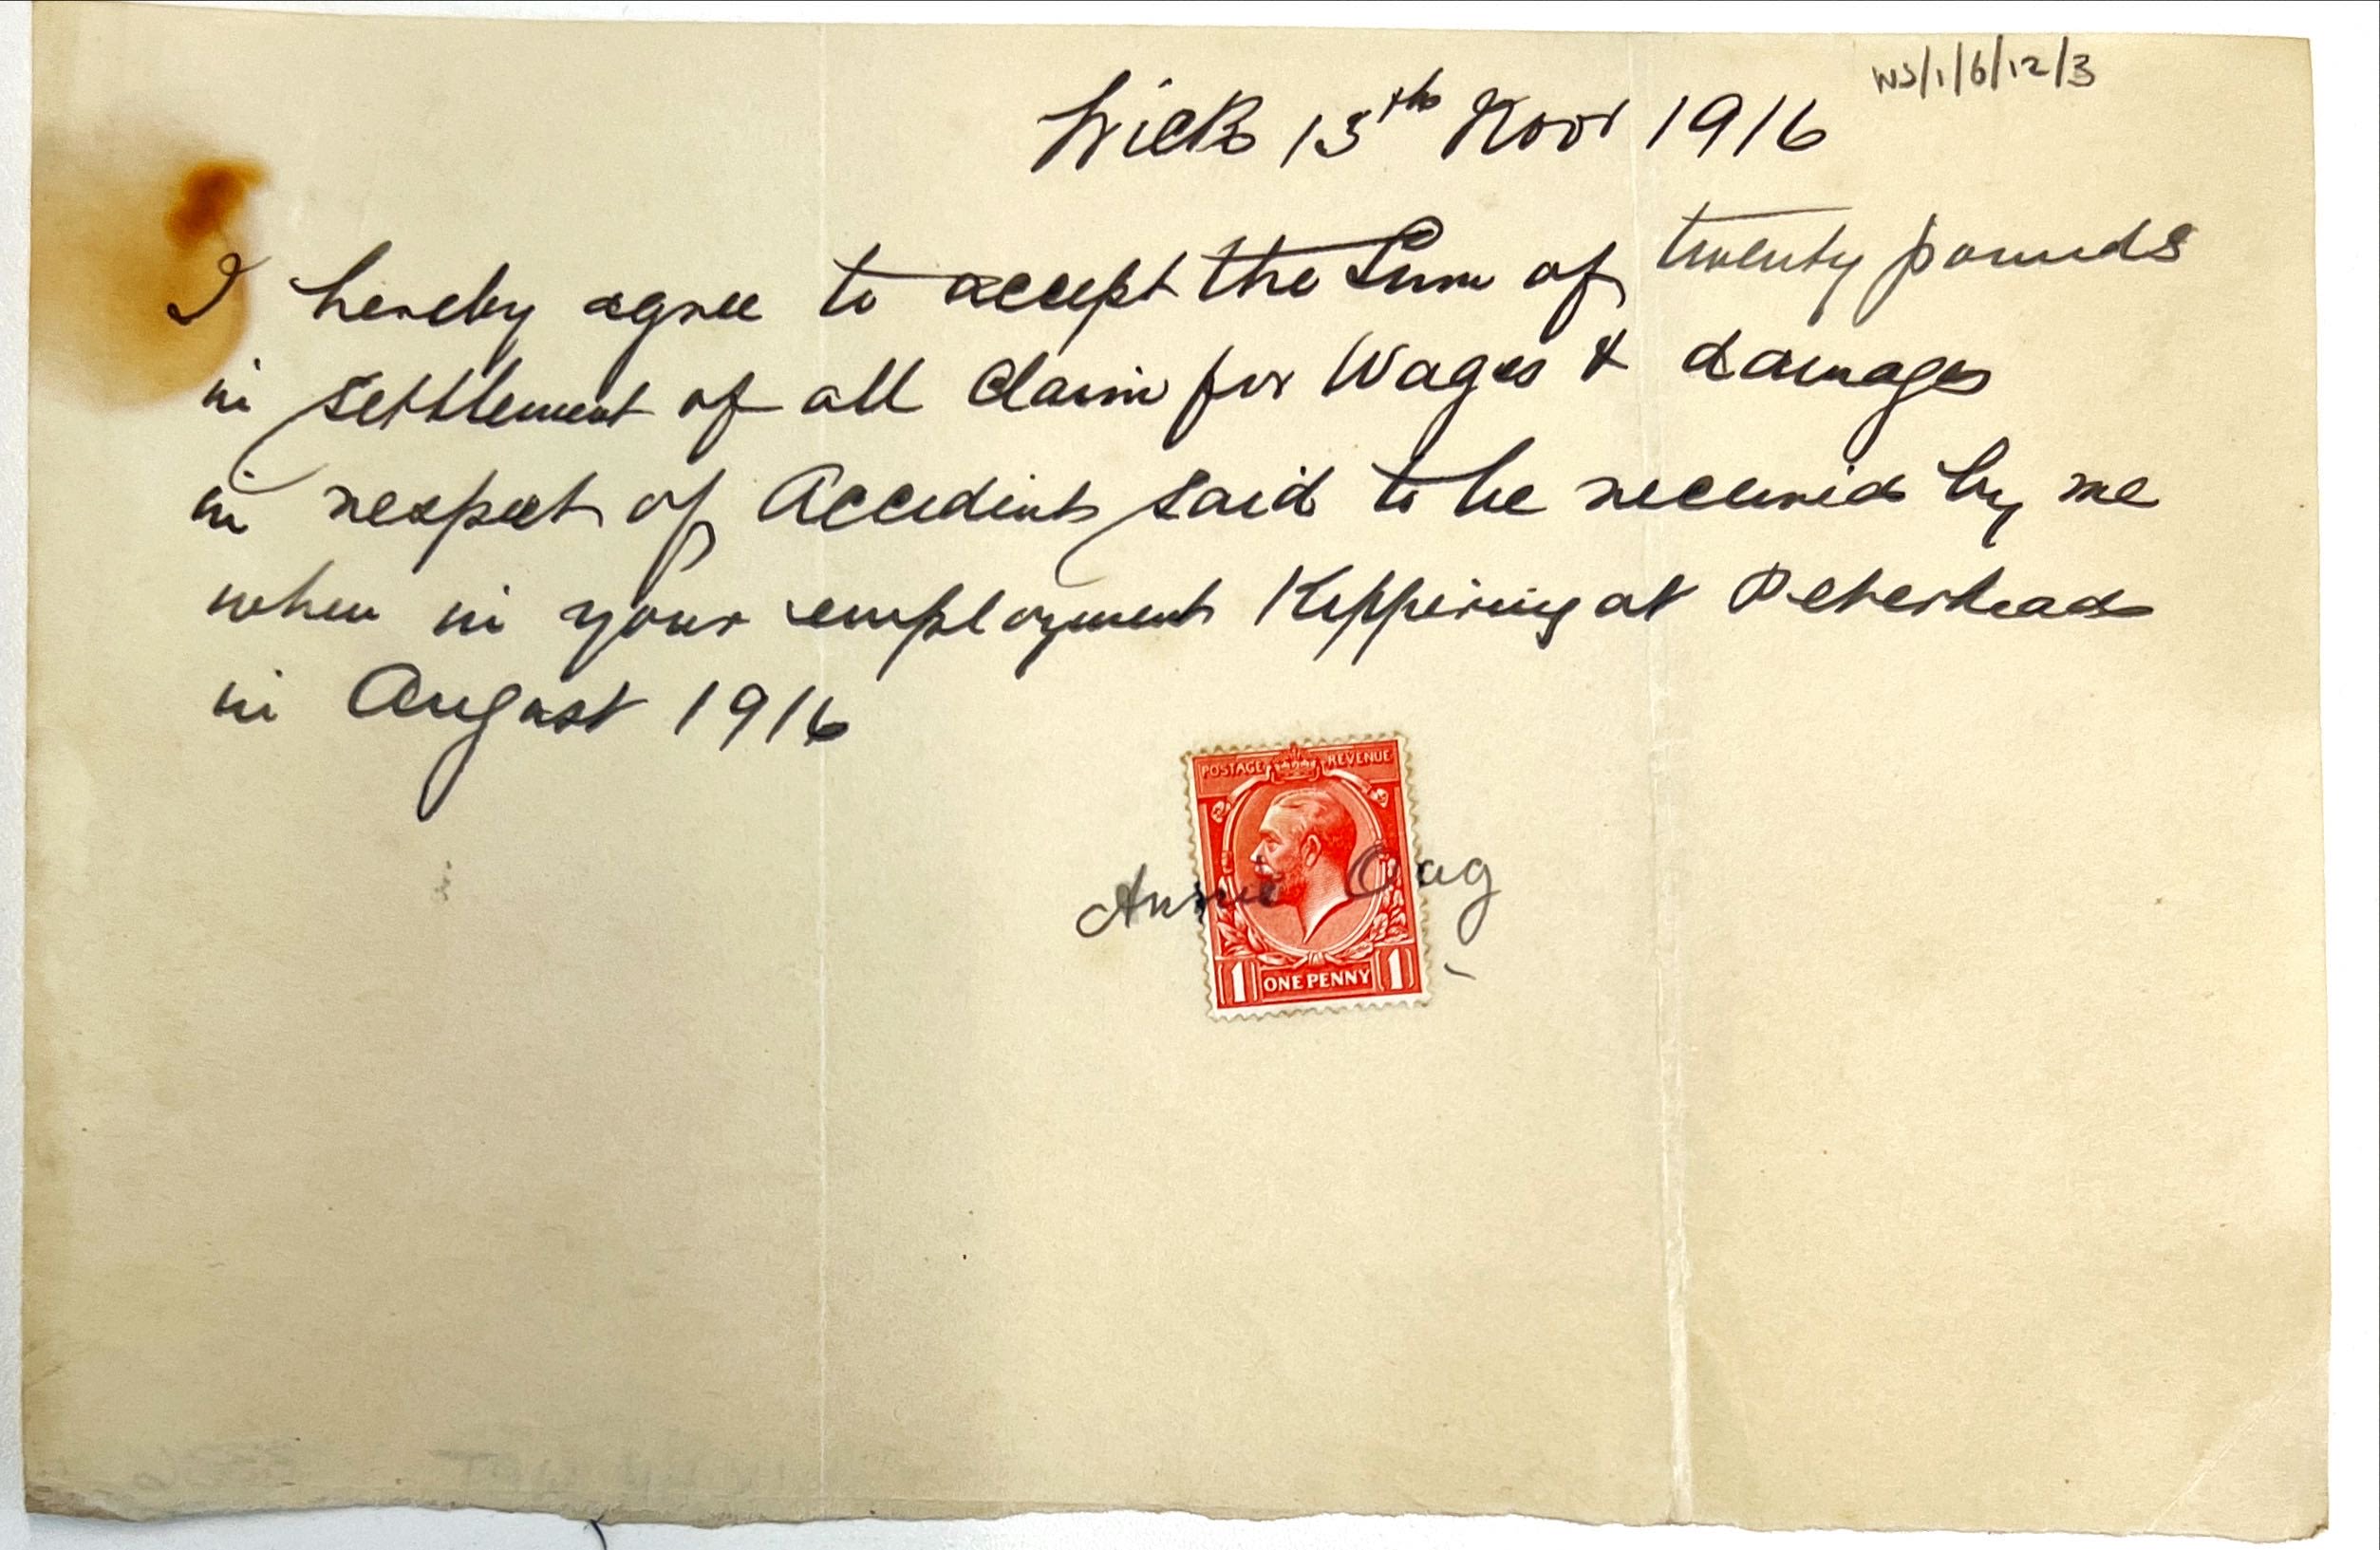 WS/1/6/12/3
Wick 13th Novr 1916
I hereby agree to accept the Sum of twenty pounds
in settlement of all Claim for Wages & damages
in respect of Accident said to be received by me
when in your employment Kippering at Peterhead
in August 1916
POSTAGE REVENUE
Annie Oag
1 ONE PENNY 1